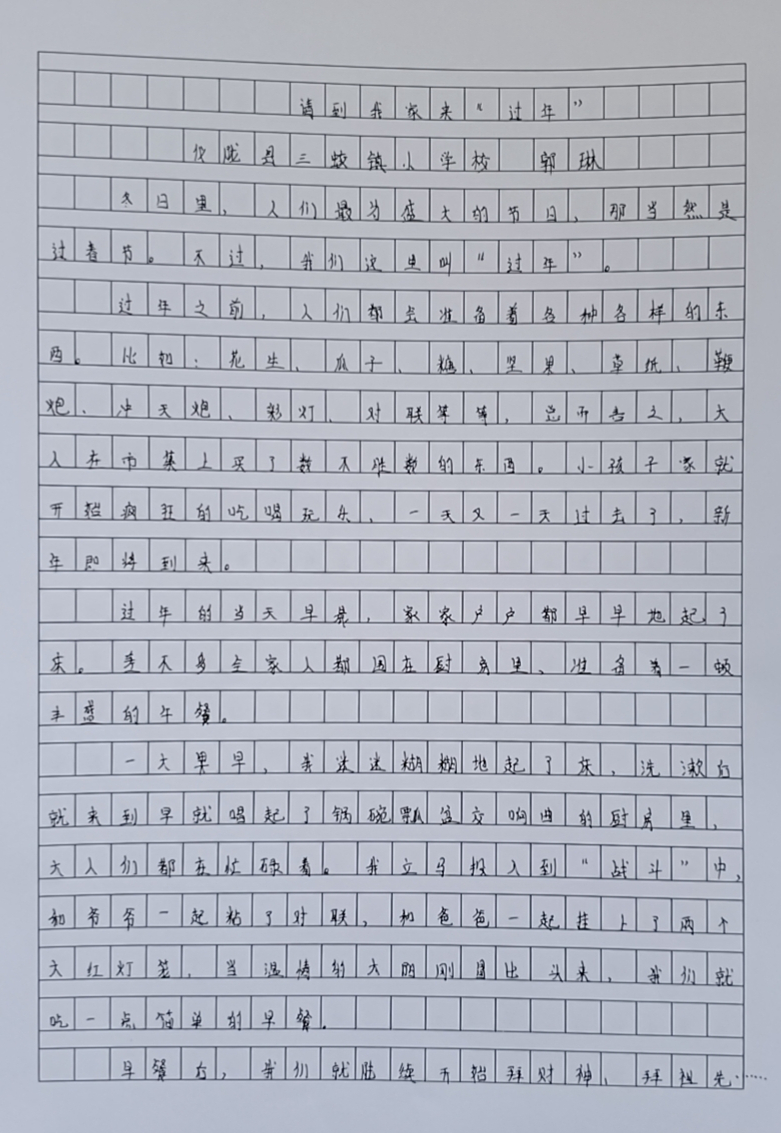 请到我家来“过年”
仪陇县三蛟镇小学校 郭琳
冬日里，人们最为盛大的节日，那当然是
过春节。不过，我们这里叫“过年”。
过年之前，人们都会准备着各种各样的东
西。比如：花生、瓜子、糖、坚果、草纸、鞭
炮、冲天炮、彩灯、对联等等，总而言之，大
人在市集上买了数不胜数的东西。小孩子家就
开始疯狂的吃喝玩乐，一天又一天过去了，新
年即将到来。
过年的当天早晨，家家户户都早早地起了
床。差不多全家人都围在厨房里、准备着一顿
丰盛的午餐。
一大早早，我迷迷糊糊地起了床、洗漱后
就来到早就唱起了锅碗瓢盆交响曲的厨房里，
大人们都在忙碌着。我立马投入到“战斗”中，
和爷爷一起粘了对联，和爸爸一起挂上了两个
大红灯笼，当温情的太阳刚冒出头来，我们就
吃一点简单的早餐。
早餐后，我们就陆续开始拜财神、拜祖先……